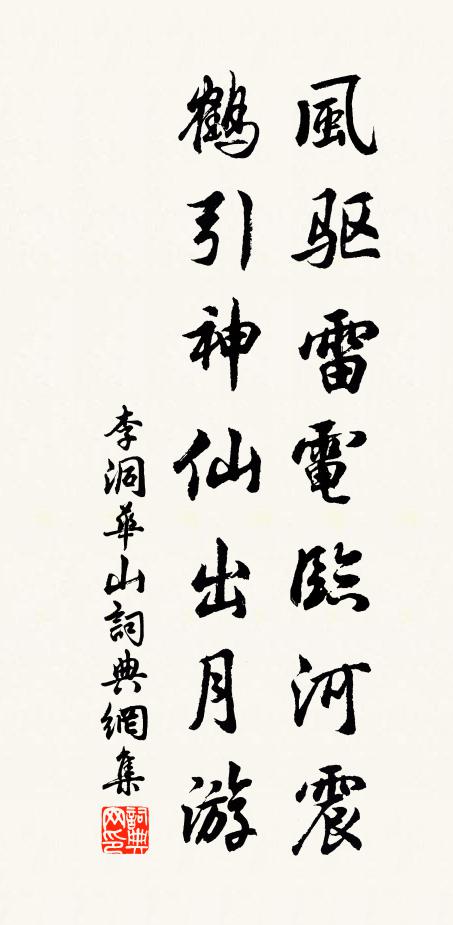 風驱雷電臨河震
鶴引神仙出月游
李洞華山詞典網集
詞典
网印